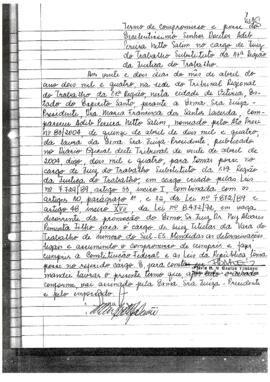 Termo de compromisso e posse do
Excelentíssimo Senhor Doutor Adib
Pereira Netto Salim no cargo de Juiz
do Trabalho Substituto da 17ª Região
da Justiça do Trabalho.
Aos vinte e dois dias do mês de abril do
ano dois mil e quatro, na sede do Tribunal Regional
do Trabalho da 17ª Região, nesta cidade de Vitória, Es-
tado do Espírito Santo, perante a Exma. Sra. Juíza-
Presidente, Dra. Maria Francisca dos Santos Lacerda, com-
pareceu Adib Pereira Netto Salim, nomeado pelo Ato Presi
nº 80/2004, de quinze de abril de dois mil e quatro,
da lavra da Exma. Sra. Juíza-Presidente, publicado
no Diário Oficial deste Tribunal de vinte de abril de
2004, digo, dois mil e quatro, para tomar posse no
cargo de Juiz do Trabalho Substituto da 17ª Região
da Justiça do Trabalho, em cargo criado pela Lei
nº 7.787/89, inciso I, combinada com os
artigos 10, parágrafo 1º, e 12, da Lei nº 7.872/89 e
artigo 48, inciso XVI, da Lei nº 8.432/92, em vaga
decorrente da promoção do Exmo. Sr. Juiz, Dr. Ney Álvares
Pimenta Filho para o cargo de Juiz Titular da Vara do
Trabalho de Mimoso do Sul-ES. Atendidas as determinações
legais e assumindo o compromisso de cumprir e fazer
cumprir a Constituição Federal e as Leis da República, tomou
posse no referido cargo. E, para constar,
mandei lavrar o presente termo que,
conforme, vai assinado pela Exma. Sra. Juíza-Presidente
e pelo empossado.